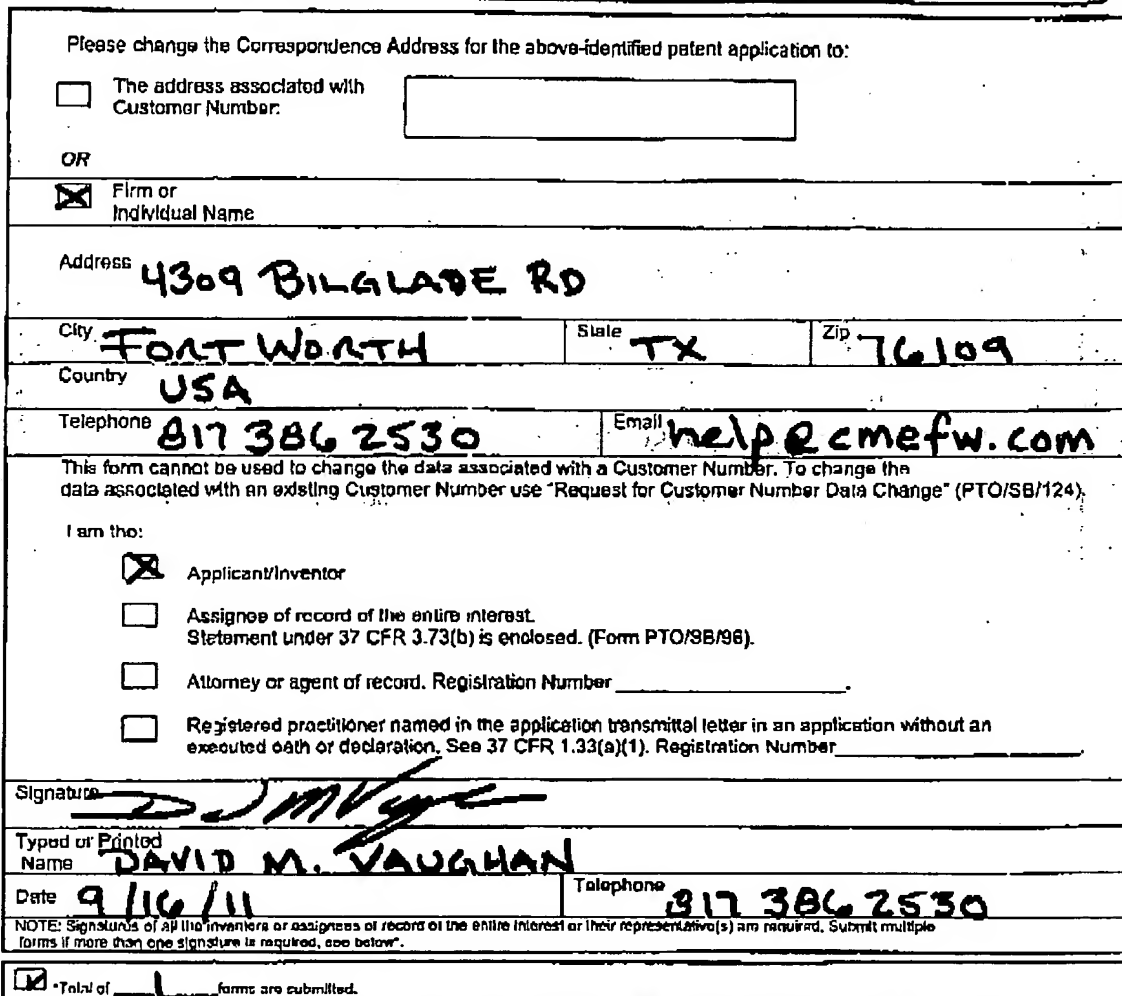 Please change the Correspondence Address for the above-identified patent application to:
The address associated with
Customer Number:
OR
Firm or
Individual Name
Address 4309 BILGLADE RD
City FORT WORTH State TX Zip 76109
Country USA
Telephone 817 386 2530 Email help@cmefw.com
This form cannot be used to change the data associated with a Customer Number. To change the
data associated with an existing Customer Number use "Request for Customer Number Data Change" (PTO/SB/124).
I am the:
Applicant/Inventor
Assignee of record of the entire interest.
Statement under 37 CFR 3.73(b) is enclosed. (Form PTO/SB/96).
Attorney or agent of record. Registration Number ____________________.
Registered practitioner named in the application transmittal letter in an application without an
executed oath or declaration. See 37 CFR 1.33(a)(1). Registration Number____________________.
Signature
Typed or Printed
Name DAVID M. VAUGHAN
Date 9/16/11 Telephone 817 386 2530
NOTE: Signatures of all the inventors or assignees of record of the entire interest or their representative(s) are required. Submit multiple
forms if more than one signature is required, see below*.
*Total of 1 forms are submitted.